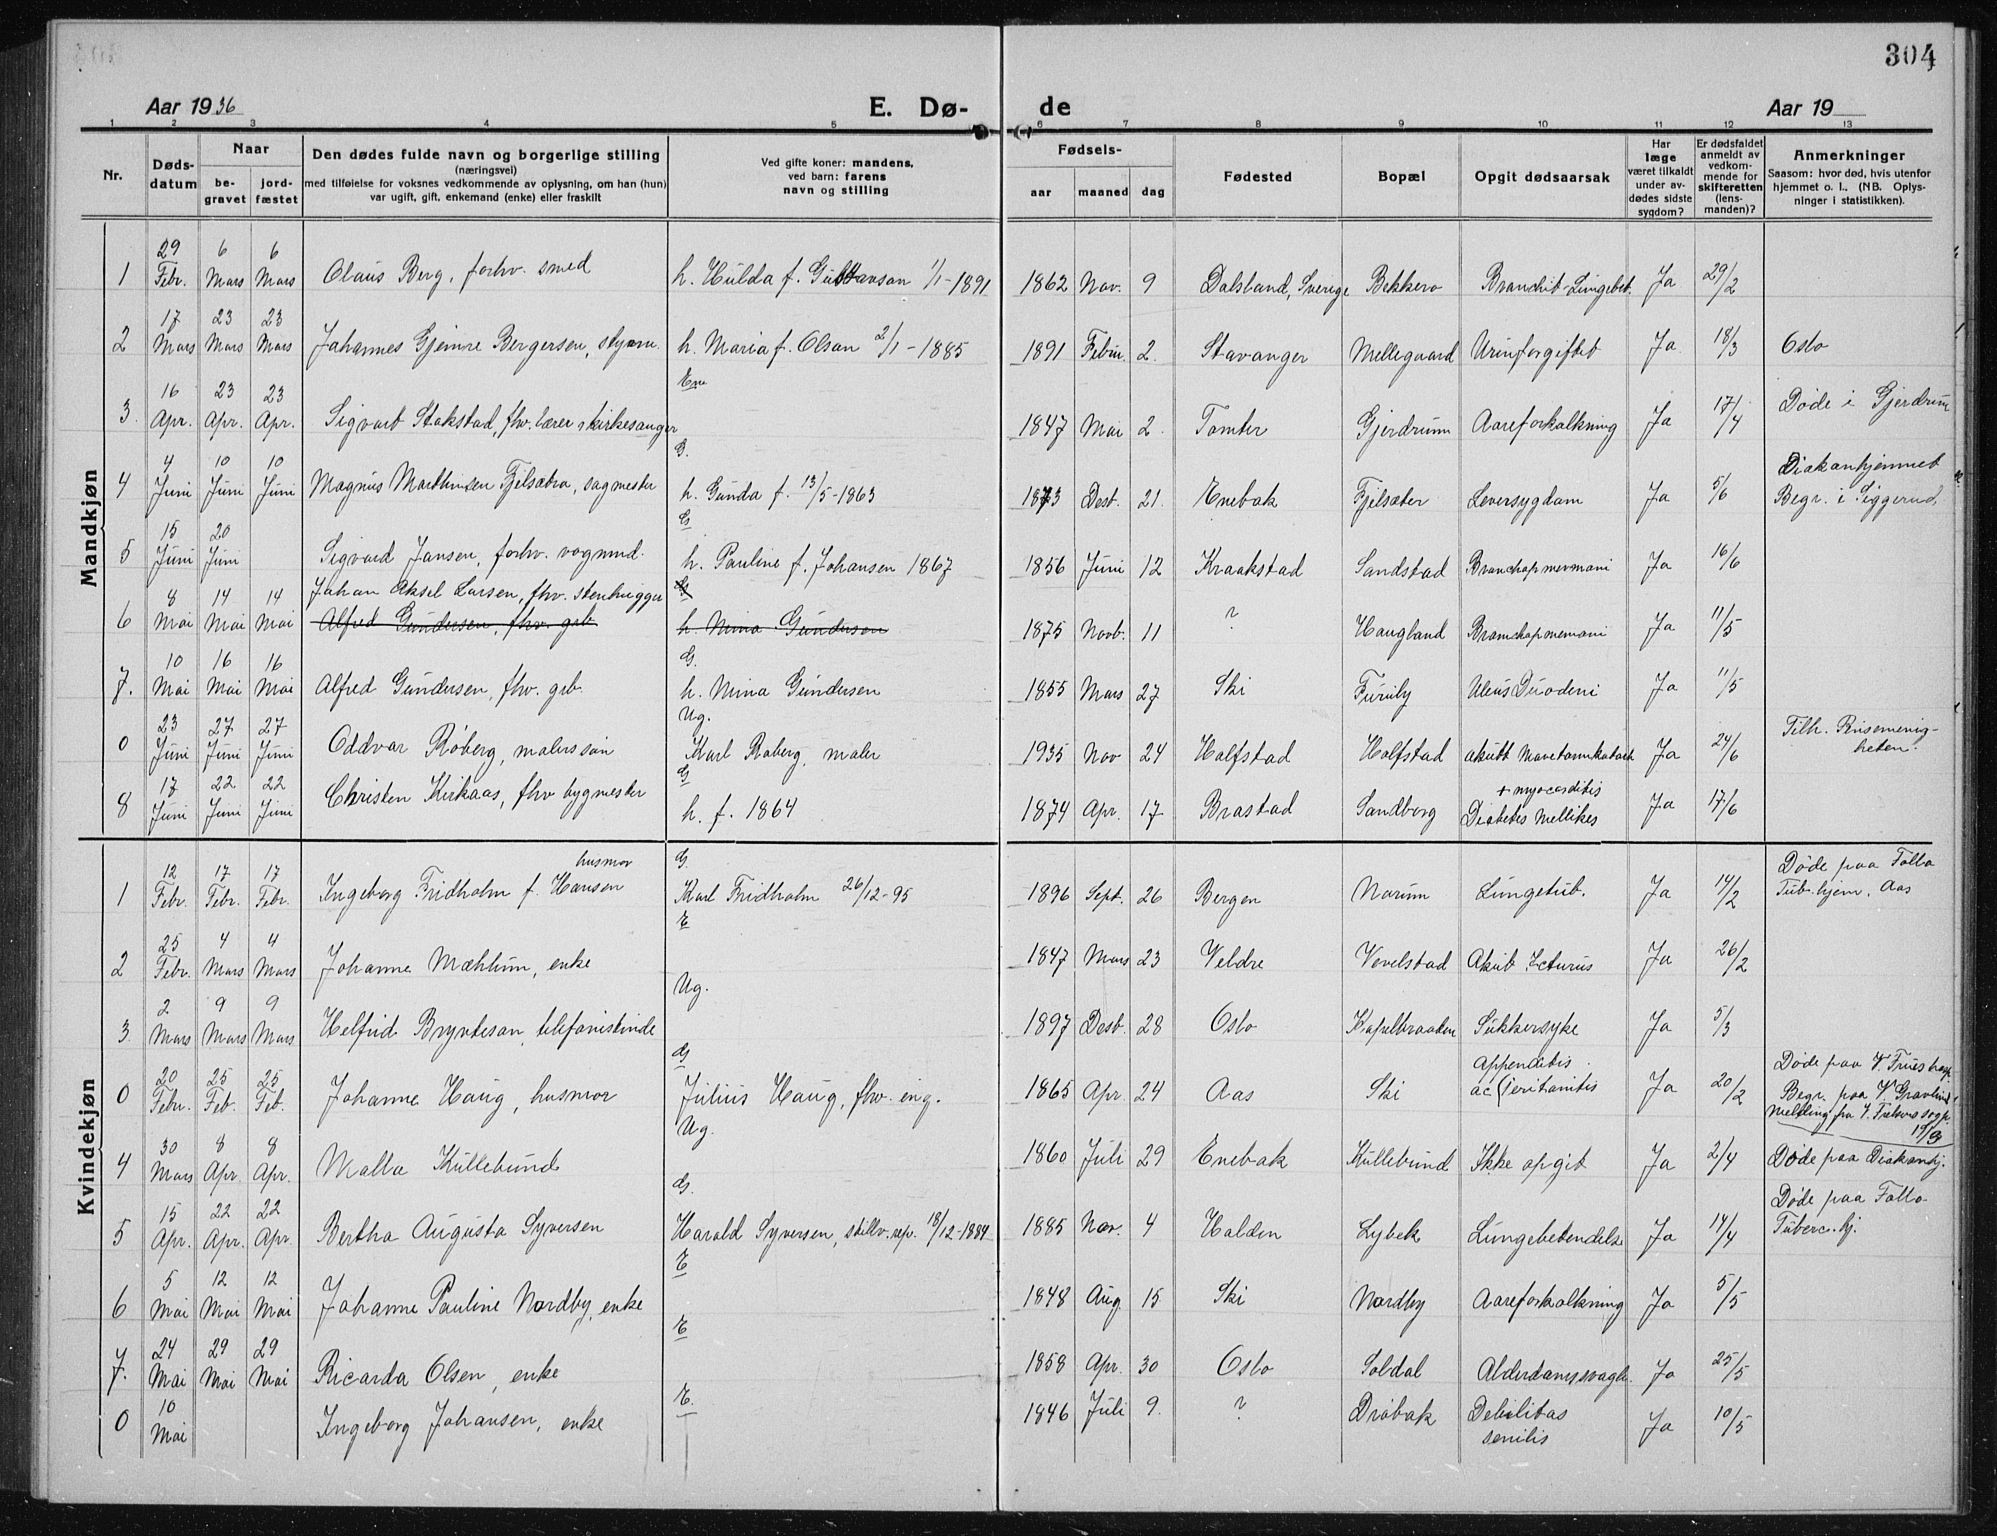 304
Aar 1936 E. Dø- de Aar 19
1 2 3 4 5 6 7 8 9 10 11 12 13
Nr. Døds-datum Naar be-gravet jord-fæstet Den dødes fulde navn og borgerlige stilling (næringsvei) med tilføielse for voksnes vedkommende av oplysning, om han (hun) var ugift, gift, enkemand (enke) eller fraskilt Ved gifte koner: mandens, ved barn: farens navn og stilling Fødsels- aar maaned dag Fødested Bopæl Opgit dødsaarsak Har læge været tilkaldt under av-dødes sidste sygdom? Er dødsfaldet anmeldt av vedkom-mende for skifteretten (lens-manden)? Anmerkninger Saasom: hvor død, hvis utenfor hjemmet o. l., (NB. Oplys-ninger i statistikken).
Mandkjøn
1 29 Febr. 6 Mars 6 Mars Olaus Berg, forhv. smed h. Hulda f. Gustavson 1/1-1891 1862 Nov. 9 Dalsland, Sverige Bekkero Bronchit-Lungebet. Ja 29/2
2 17 Mars 23 Mars 23 Mars Johannes Gjemre Bergersen, styrm. h. Maria f. Olson 2/1-1885 1891 Febru. 2. Stavanger Mellegaard Urinforgiftet Ja 18/3 Oslo
3 16 Apr. 23 Apr. 23 Apr. Sigvart Stokstad, fhv. lærer, kirkesanger Em 1847 Mai 2. Tomter Gjerdrum Aareforkalkning Ja 17/4 Døde i Gjerdrum
4 4 Juni 10 Juni 10 Juni Magnus Marthinsen Fjelsæter, sagmester G. h. Gunda f. 13/5-1863 1873 Desb. 21. Enebak Fjelsæter Leversygdom Ja 5/6 Diakonhjemmet Begr. i Siggerud.
5 15 Juni 20 Juni Sigvard Jansen, forhv. vognmd. G h. Pauline f. Johansen 1867 1856 Juni 12 Kraakstad Sandstad Bronchopnevmoni Ja 16/6
6 8 Mai 14 Mai 14 Mai Johan Aksel Larsen, fhv. stenhugger Alfred Gundersen, fhv. grb. h. Nina Gundersen 1875 Novb. 11 ? Haugland Bronchopnemoni Ja 11/5
7. 10 Mai 16 Mai 16 Mai Alfred Gundersen, fhv. grb. G. h. Nina Gundersen 1855 Mars 27 Ski Furuby Ulcus Duodeni Ja 11/5
0 23 Juni 27 Juni 27 Juni Oddvar Røberg, malerssøn Ug. Karl Røberg, maler 1935 Nov 24 Holfstad Holfstad akutt Mavetarmkatarh Ja 24/6 Tilh. Frimenig-heten.
8 17 Juni 22 Juni 22 Juni Christen Kirkaas, fhv bygmester G h. f. 1864 1874 Apr. 17 Brastad Sandborg + myocarditis Diabetes Mellikes Ja 17/6
Kvindekjøn
1 12 Febr. 17 Febr. 17 Febr. Ingeborg Fridholm f. Hansen husmor G. Karl Fridholm 26/12-95 1896 Sept. 26 Bergen Narum Lungetub. Ja 14/2 Døde paa Follo Tub.hjem, Aas
2 25 Febr. 4 Mars 4 Mars Johanne Mæhlum, enke E 1847 Mars 23 Veldre Vevelstad Akut Icturus Ja 26/2
3 2 Mars 9 Mars 9 Mars Helfrid Bryntesan, telefonistinde Ug. 1897 Desb. 28 Oslo Kapelbraaten Sukkersyke Ja 5/3
0 20 Febr. 25 Feb. 25 Feb. Johanne Haug, husmor G Julius Haug, fhv. eng. 1865 Apr. 24 Aas Ski appenditis. ac (eritonitis Ja 20/2 Døde paa V. Frues hosp. Begr. paa V. Gravlund Melding fra V. Frelsers sogp. 19/3
4 30 Mars 8 Apr. 8 Apr. Malla Kullebund Ug. 1860 Juli 29 Enebak Kullebund Ikke opgit Ja 2/4 Døde paa Diakonhj.
5 15 Apr. 22 Apr. 22 Apr. Bertha Augusta Syversen G. Harald Syversen, stillv.rep. 18/12-1884 1885 Nov. 4 Halden Lybek Lungebetendelse Ja 14/4 Døde paa Follo Tuberc.hj.
6 5 Mai 12 Mai 12 Mai Johanne Pauline Nordby, enke E 1848 Aug. 15 Ski Nordby Aareforkalkning Ja 5/5
7. 24 Mai 29 Mai 29 Mai Ricarda Olsen, enke E 1858 Apr. 30 Oslo Soldal Alderdomssvagh. Ja 25/5
0 10 Mai Ingeborg Johansen, enke E. 1846 Juli 9. ? Drøbak Debilitas senilis Ja 10/5